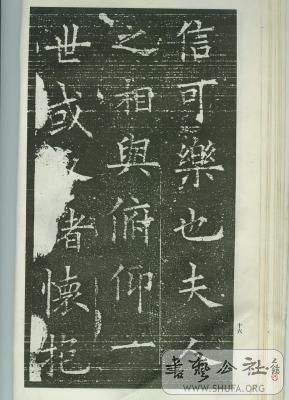 信可樂也夫人
之相與俯仰一
世或懷抱
十六
書藝公社
WWW.SHUFA.ORG